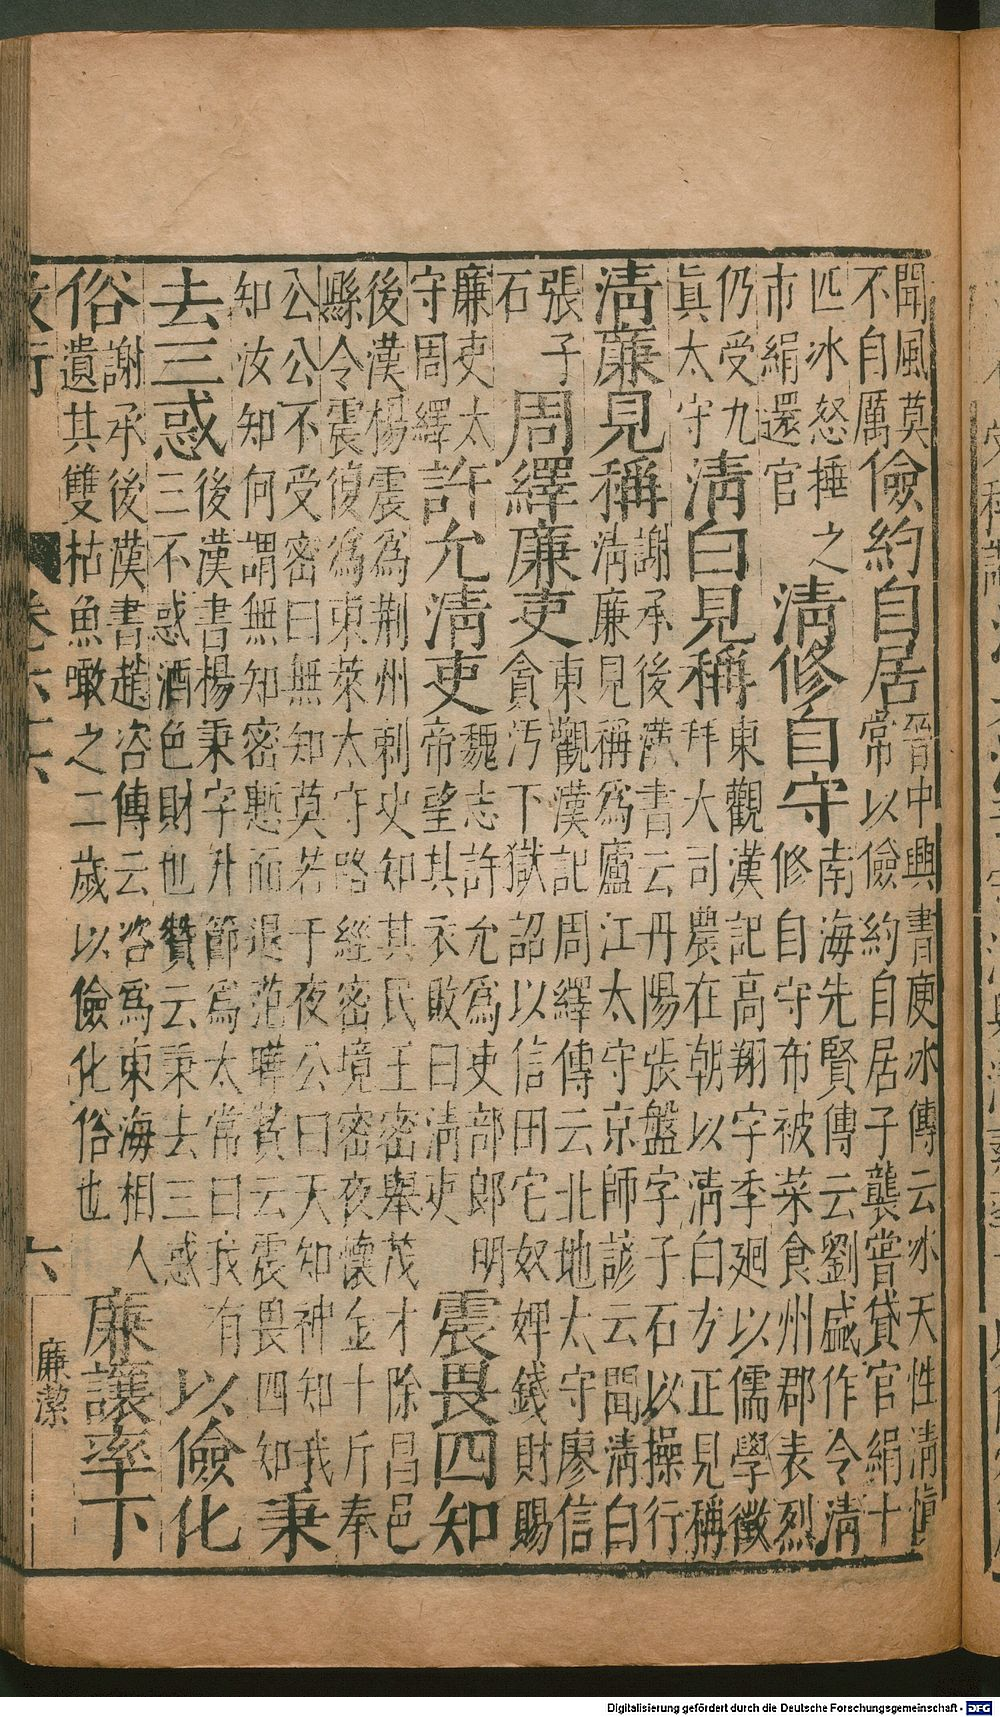 聞風莫
不自厲
儉約自居
晉中興書庾冰傳云冰天性清慎
常以儉約自居子襲嘗貸官絹十
匹冰怒捶之
市絹還官
清修自守
南海先賢傳云劉盛作令清
修自守布被菜食州郡表烈
仍受九
真太守
清白見稱
東觀漢記高翔字季迴以儒學徵
拜大司農在朝以清白方正見稱
清廉見稱
謝承後漢書云丹陽張盤字子石以操行
清廉見稱為廬江太守京師諺云聞清白
張子
石
周繹廉吏
東觀漢記周繹傳云北地太守廖信
貪汚下獄詔以信田宅奴婢錢財賜
廉吏太
守周繹
許允清吏
魏志許允為吏部郎明
帝望其衣敗曰清吏
震畏四知
後漢楊震為荆州刺史知其民王密舉茂才除昌邑
縣令震復為東萊太守路經密境密夜懷金十斤奉
公公不受密曰無知莫若于夜公曰天知神知我
知汝知何謂無知密慙而退范曄贊云震畏四知
秉
去三惑
後漢書楊秉字升節為太常曰我有
三不惑酒色財也贊云秉去三惑
以儉化
俗
謝承後漢書趙咨傳云咨為東海相人
遺其雙枯魚噉之二歲以儉化俗也
廉讓率下
六
廉潔
Digitalisierung gefördert durch die Deutsche Forschungsgemeinschaft - DFG